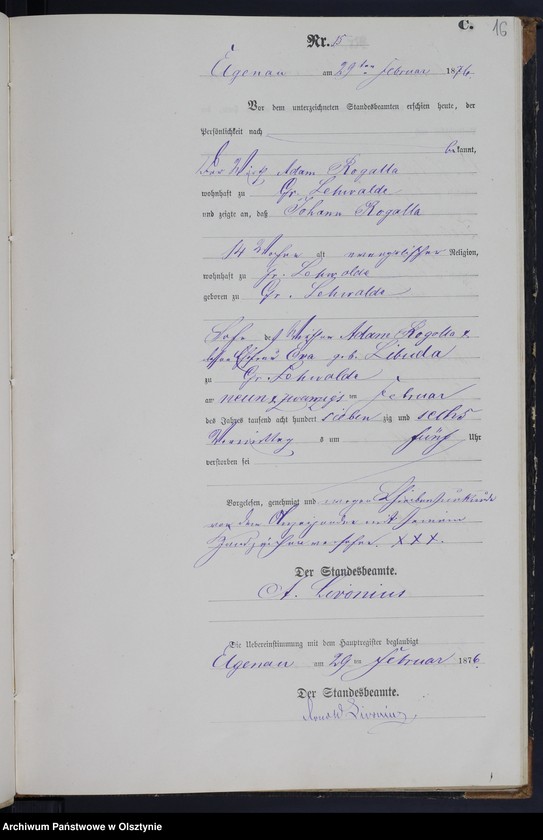 C. 16
Nr. 15
Elgenau am 29ten Februar 1876.
Vor dem unterzeichneten Standesbeamten erschien heute, der
Persönlichkeit nach
bekannt,
Der Wirth Adam Rogalla
wohnhaft zu Gr. Lehwalde
und zeigte an, daß Johann Rogalla
14 Wochen alt evangelischer Religion,
wohnhaft zu Gr. Lehwalde
geboren zu Gr. Lehwalde
Sohn des Adam Rogalla &
Eva geb. Libuda
zu Gr. Lehwalde
am neun & zwanzigs ten Februar
des Jahres tausend acht hundert sieben zig und sechs
Vormittag s um fünf Uhr
verstorben sei
Vorgelesen, genehmigt und wegen Schreibensunkunde
von dem Anzeigenden mit seinem
Handzeichen versehen. XXX.
Der Standesbeamte.
A. Livonius
Die Uebereinstimmung mit dem Hauptregister beglaubigt
Elgenau am 29 ten Februar 1876.
Der Standesbeamte.
Arnold Livonius
Archiwum Państwowe w Olsztynie